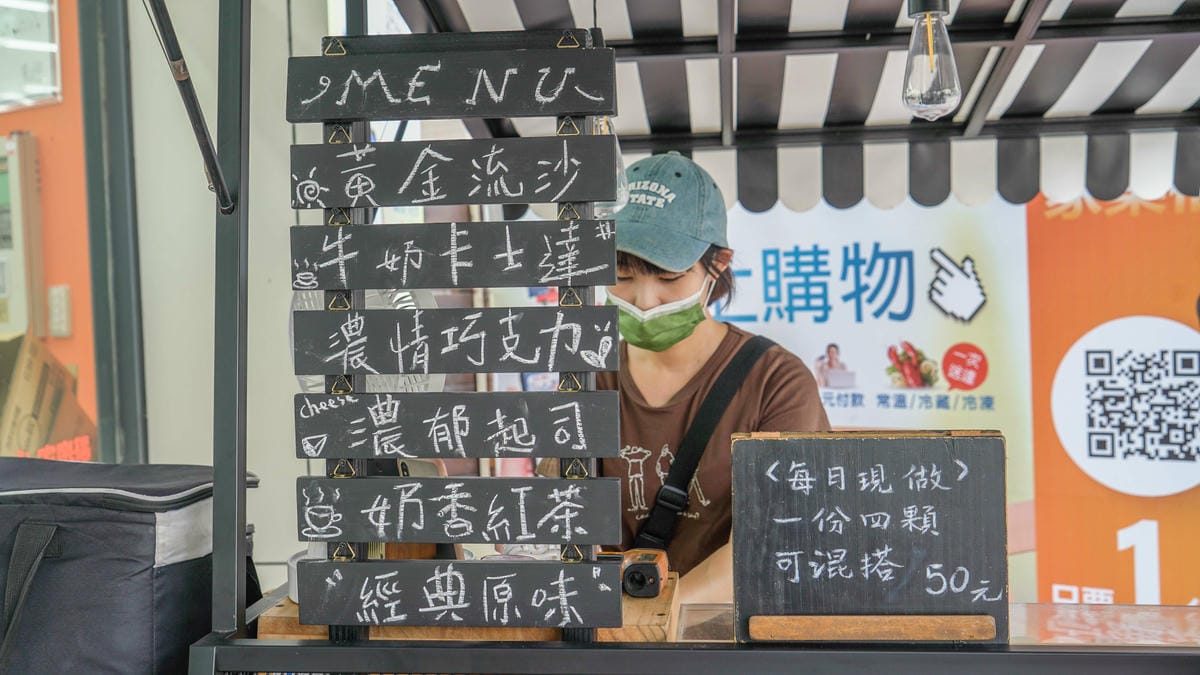 MENU
黃金流沙
牛奶卡士達
濃情巧克力
cheese
濃郁起司
奶香紅茶
經典原味
ARIZONA
STATE
上購物
一次
送達
元付款
常溫/冷藏/冷凍
〈每日現做〉
一份四顆
可混搭 50元
1